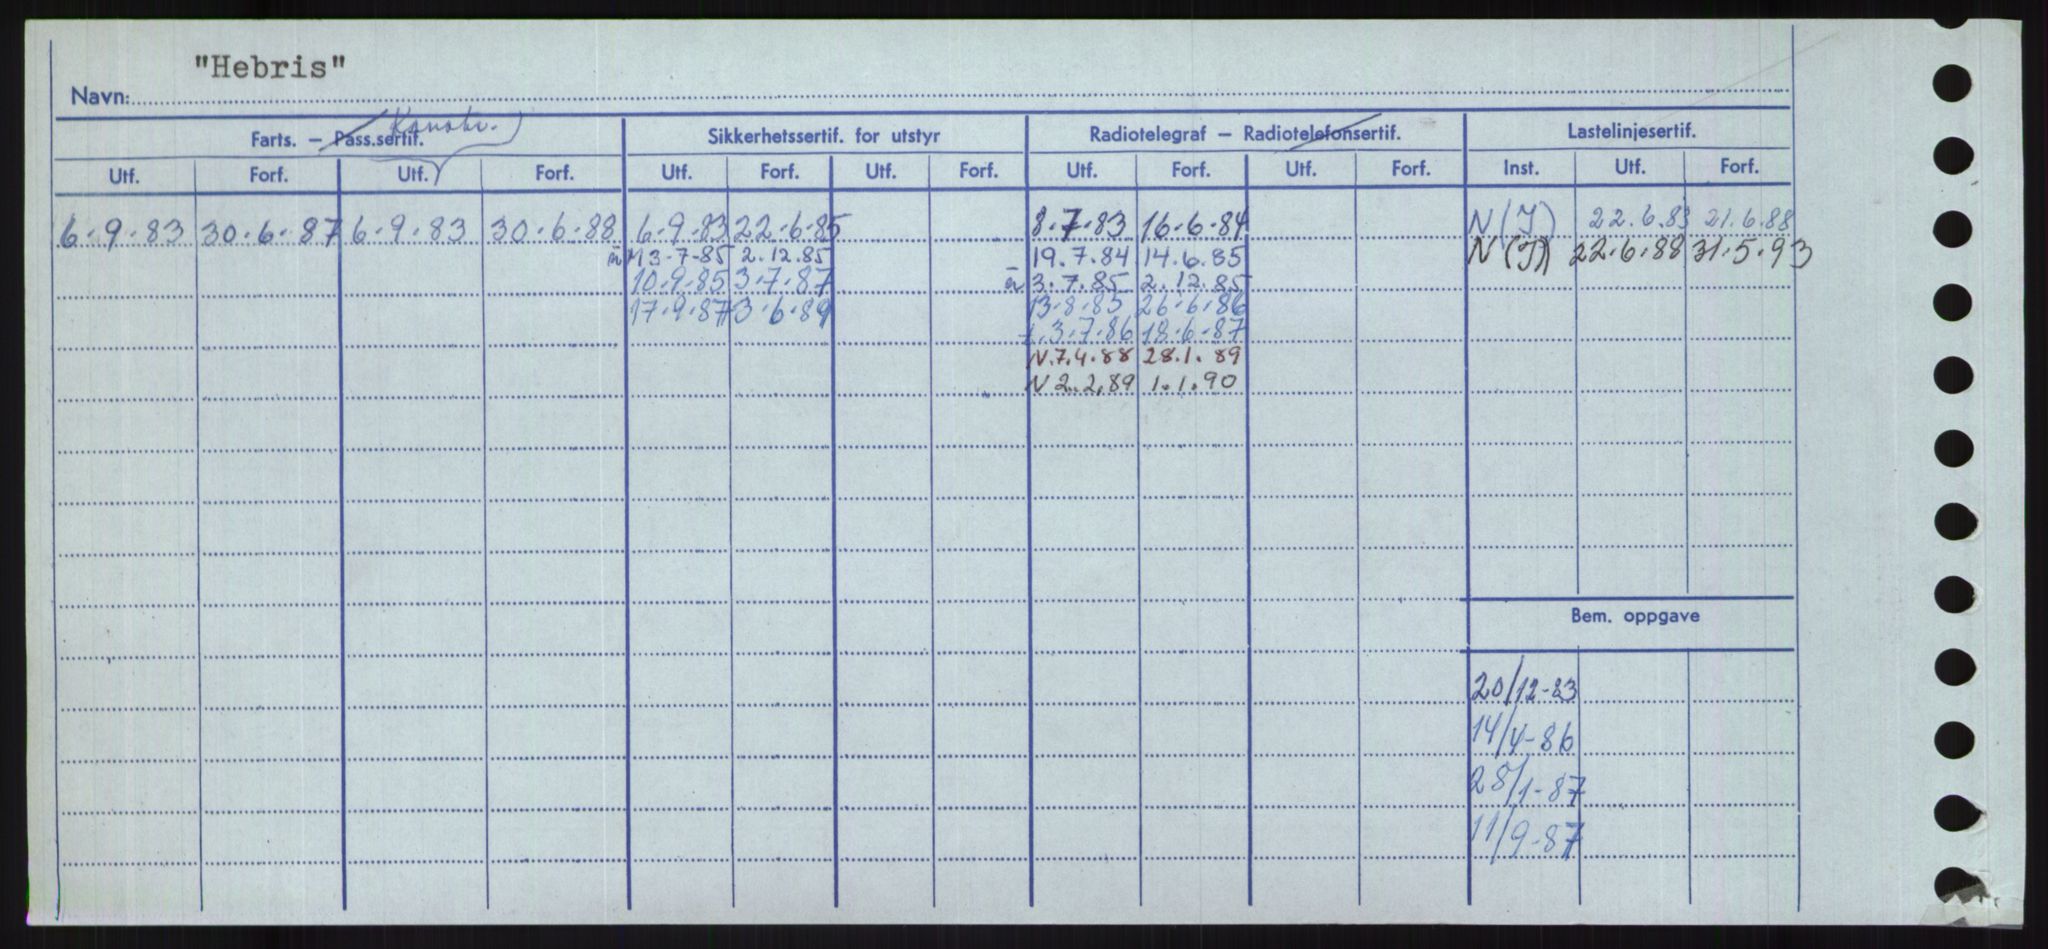 "Hebris"
Navn:
Farts. – Pass.sertif. Konstr.
Sikkerhetssertif. for utstyr
Radiotelegraf – Radiotelefonsertif.
Lastelinjesertif.
Utf. Forf. Utf. Forf. Utf. Forf. Utf. Forf. Utf. Forf. Utf. Forf. Inst. Utf. Forf.
6.9.83 30.6.87 6.9.83 30.6.88 6.9.83 22.6.85 8.7.83 16.6.84 N(I) 22.6.83 21.6.88
3-7-85 2.12.85 19.7.84 14.6.85 N(I) 22.6.88 31.5.93
10.9.85 3.7.87 3.7.85 2.12.85
17.9.87 3.6.89 13.8.85 26.6.86
3.7.86 18.6.87
N.7.4.88 28.1.89
N 2.2.89 1.1.90
Bem. oppgave
20/12-83
14/4-86
28/1-87
11/9-87